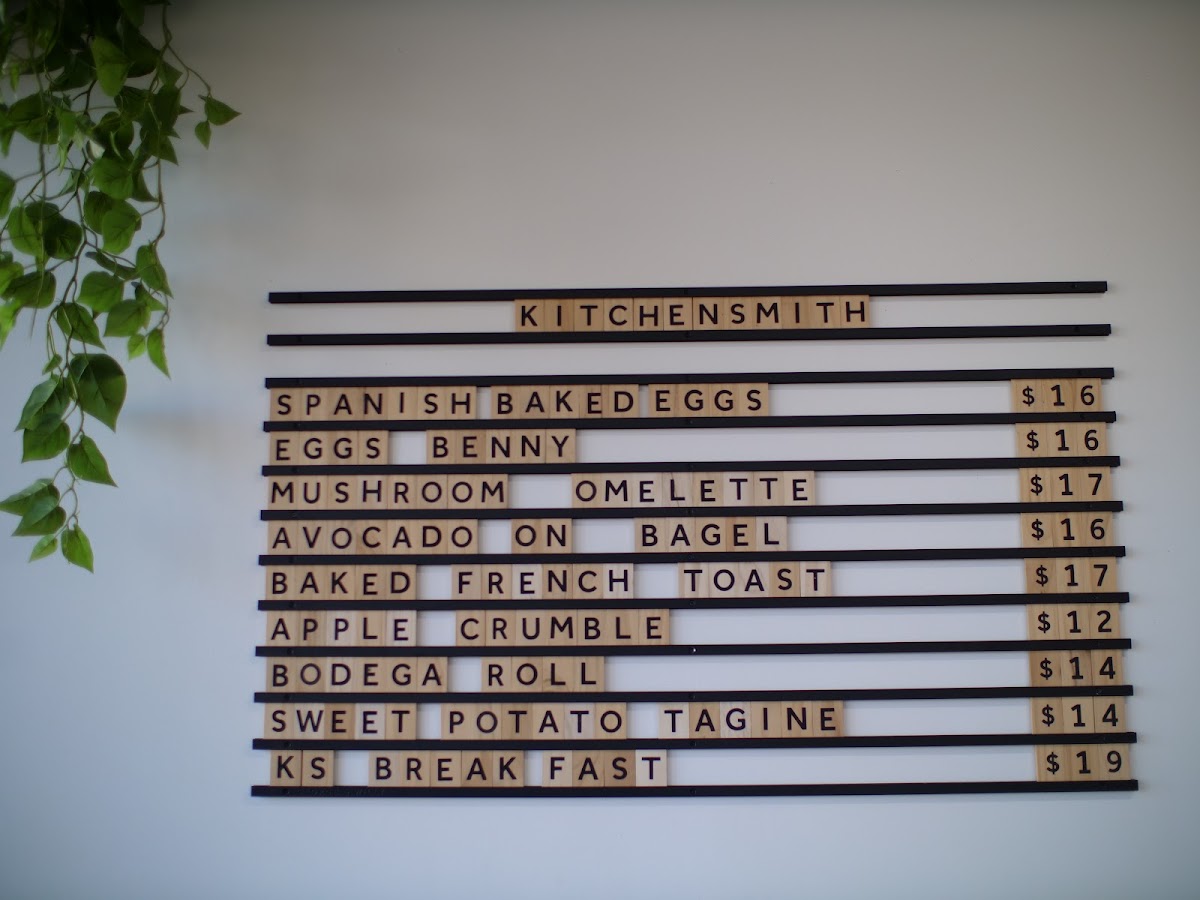 KITCHENSMITH
SPANISH BAKED EGGS $16
EGGS BENNY $16
MUSHROOM OMELETTE $17
AVOCADO ON BAGEL $16
BAKED FRENCH TOAST $17
APPLE CRUMBLE $12
BODEGA ROLL $14
SWEET POTATO TAGINE $14
KS BREAK FAST $19